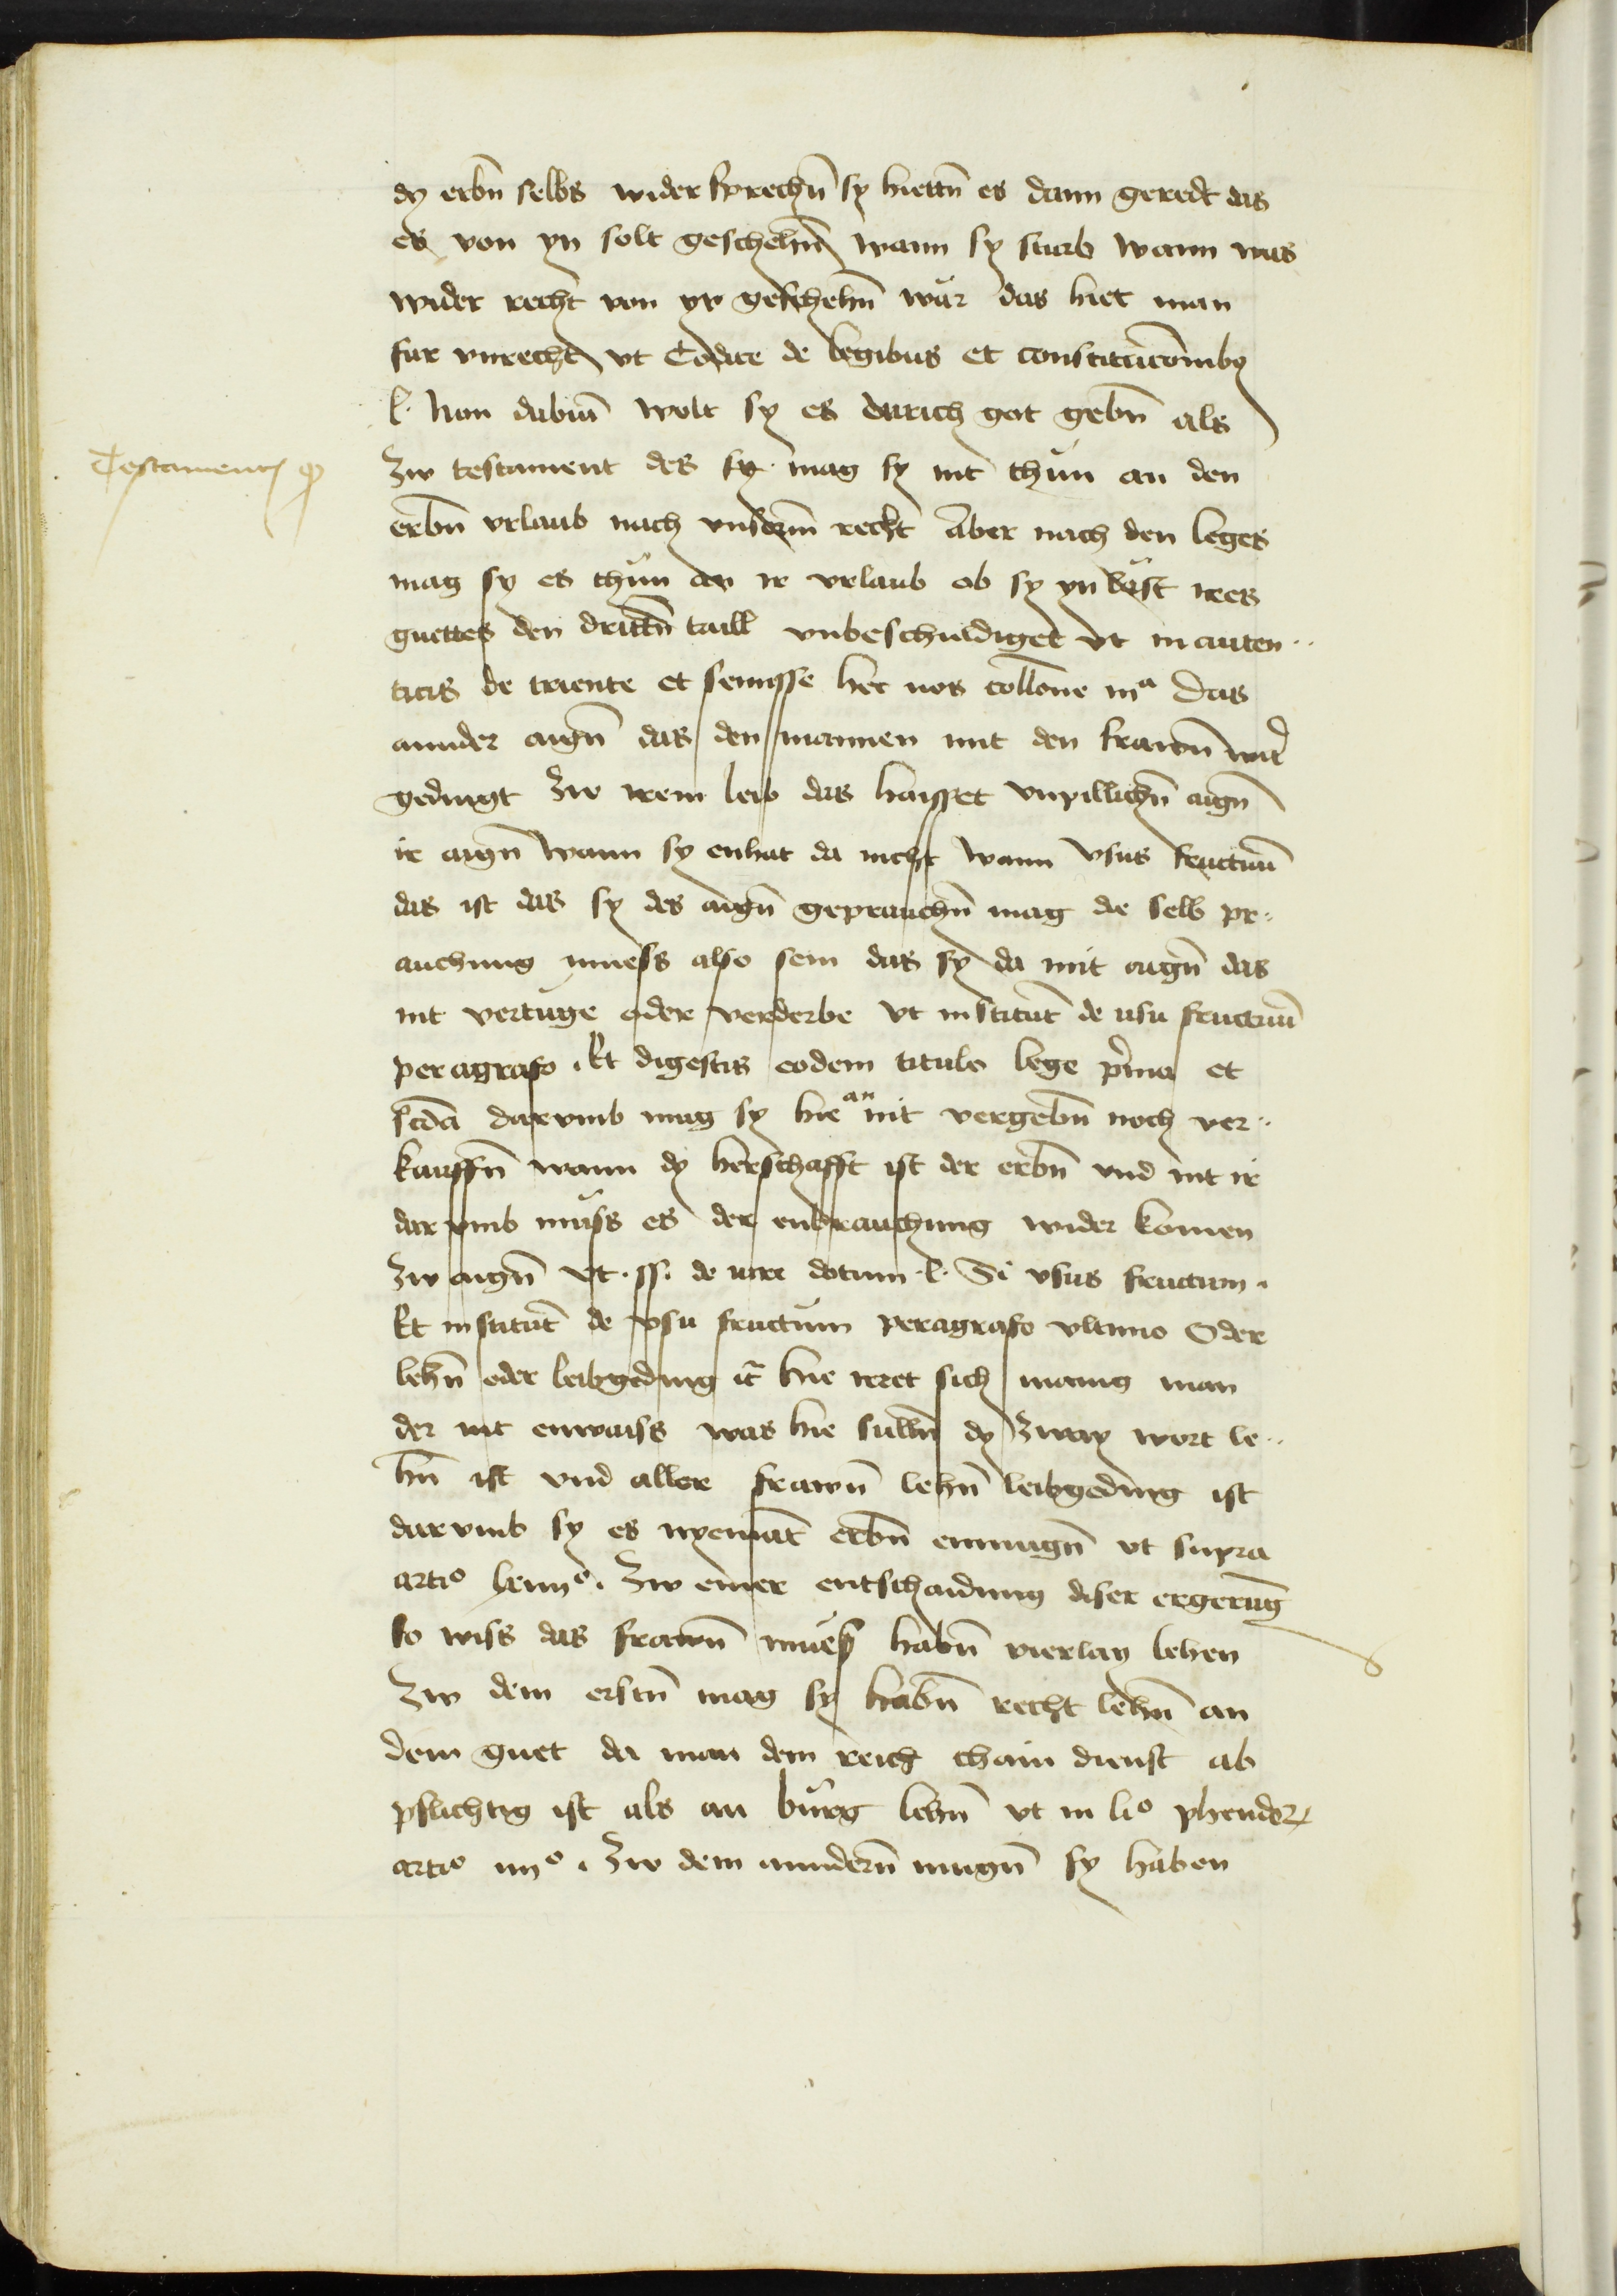 dy erbn̄ selbs wider sprechn̄ sy hiettn̄ es dann geredt das
es von yn solt geschehn̄ wann sy sturb wann was
wider recht von yr geschehn̄ wär das hiet man
fur vnrecht vt Codice de legibus et constitucōnibꝫ
l. Non dubiū wolt sy es durich got gebn̄ als
Testament
Zw testament des sy mag sy nit thun an den
erbn̄ vrlaub nach vnserm̄ recht Aber nach den leges
mag sy es thun an ir vrlaub ob sy yn läst ires
guettes den drittn̄ taill vnbeschuldiget vt in auten-
ticis de triente et semisse hec nos collōne iiiᵃ Das
annder aign̄ das den mannen mit den frawn̄ wirt
gedingt zw irem leib das haisset vnpillichn̄ aign̄
ir aign̄ wann sy enhat da nicht wann vsus fructuū
das ist das sy des aign̄ geprauchn̄ mag die selb pr-
auchung muess also sein das sy da mit aign̄ das
nit vertuge oder verderbe vt institut̄ de usu fructuū
peragrafo i Et digestis eodem titulo lege pima et
scdā darvmb mag sy hie an nit vergebn̄ noch ver-
kauffn̄ wann dy herschafft ist der erbn̄ vnd nit ir
dar vmb muss es der enbrauchung wider komen
zw aign̄ vt . ff. de iure dotium . l. Si vsus fructum .
Et institut̄ de vsu fructum peragrafo vltimo Oder
lehn̄ oder leibgeding it̄ hie irret sich manig man
der nit enwaiss was hie sulln̄ dy zway wort le-
hn̄ ist vnd aller frawn̄ lehn̄ leibgeding ist
darvmb sy es nyemāt erbn̄ enmugn̄ vt supra
artᵒ . Zw einer entschaidung diser ergerūg
so wiss das frawn̄ muess habn̄ vierlay lehen
Zw dem erstn̄ mag sy habn̄ recht lehn̄ an
dem guet da man dem reich chain dienst ab
pflichtig ist als an burg lehn̄ vt in liᵒ phendor
artᵒ iiiiᵒ . Zw dem anndern̄ mugn̄ sy haben